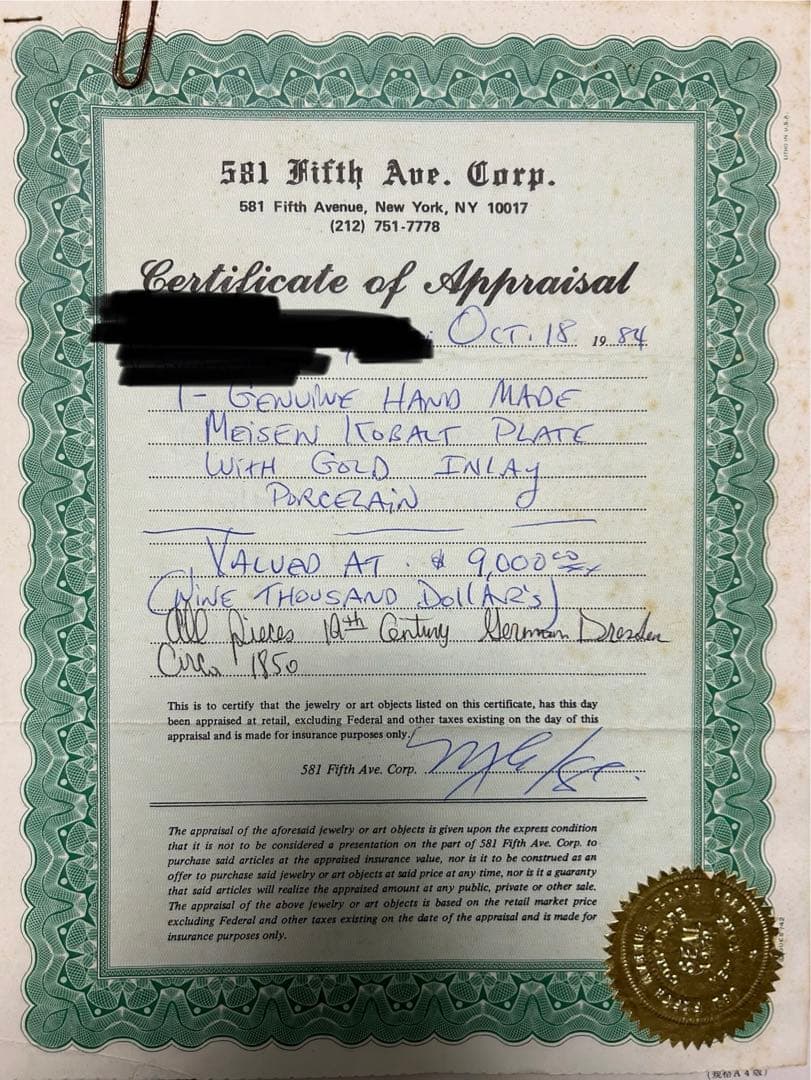 581 Fifth Ave. Corp.
581 Fifth Avenue, New York, NY 10017
(212) 751-7778
Certificate of Appraisal
OCT. 18 1984
1 - GENUINE HAND MADE
MEISEN KOBALT PLATE
WITH GOLD INLAY
PORCELAIN
VALUED AT . $ 9,000 00/xx
(NINE THOUSAND DOllAR'S)
All pieces 19th Century German Dresden
Circa 1850
This is to certify that the jewelry or art objects listed on this certificate, has this day
been appraised at retail, excluding Federal and other taxes existing on the day of this
appraisal and is made for insurance purposes only.
581 Fifth Ave. Corp.
The appraisal of the aforesaid jewelry or art objects is given upon the express condition
that it is not to be considered a presentation on the part of 581 Fifth Ave. Corp. to
purchase said articles at the appraised insurance value, nor is it to be construed as an
offer to purchase said jewelry or art objects at said price at any time, nor is it a guaranty
that said articles will realize the appraised amount at any public, private or other sale.
The appraisal of the above jewelry or art objects is based on the retail market price
excluding Federal and other taxes existing on the date of the appraisal and is made for
insurance purposes only.
LITHO IN U.S.A.
(規格A4版)